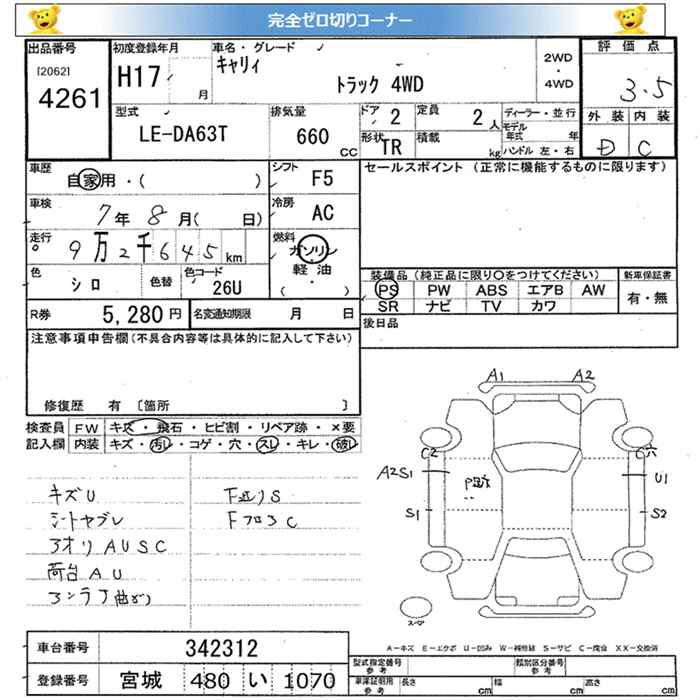 完全ゼロ切りコーナー
出品番号
[2062]
4261
初度登録年月
H17 月
車名・グレード
キャリィ
トラック 4WD
2WD
・
4WD
評価点
3.5
外装 内装
D C
型式
LE-DA63T
排気量
660 CC
ドア 2
定員 2 人
形状 TR
積載 kg
ディーラー・並行
モデル年式 年
ハンドル 左・右
車歴
自家用・( )
シフト F5
セールスポイント (正常に機能するものに限ります)
車検 7年 8月( 日)
冷房 AC
走行 9万2千645km
燃料
ガソリン
軽油
( )
色 シロ
色替
色コード 26U
装備品 (純正品に限り○をつけてください)
新車保証書
PS PW ABS エアB AW
SR ナビ TV カワ
有・無
R券 5,280円
名変通知期限 月 日
後日品
注意事項申告欄(不具合内容等は具体的に記入して下さい)
修復歴 有 〔箇所 〕
検査員記入欄
FW キズ・飛石・ヒビ割・リペア跡・×要
内装 キズ・汚レ・コゲ・穴・スレ・キレ・破レ
キズU
シートヤブレ
アオリAUSC
荷台AU
F廻りS
FフロアC
A1 A2
C2 C穴
A2S1 U1
S1 S2
A-キズ E-エクボ U-凹み W-補修跡 S-サビ C-腐食 XX-交換済
車台番号 342312
登録番号 宮城 480 い 1070
型式指定番号 参考
類別区分番号 参考
車庫証明用 参考
長さ cm 幅 cm 高さ cm